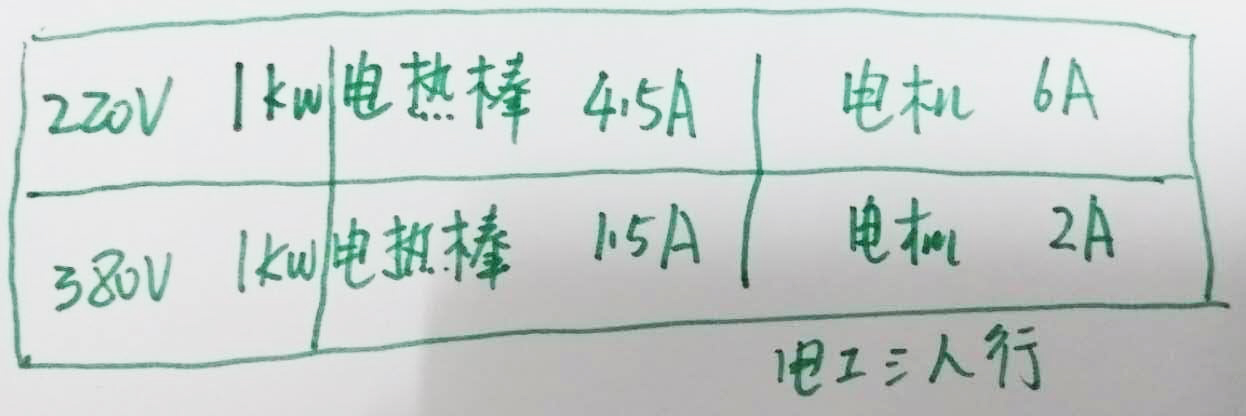 220V 1kw 电热棒 4.5A 电机 6A
380V 1kw 电热棒 1.5A 电机 2A
电工三人行